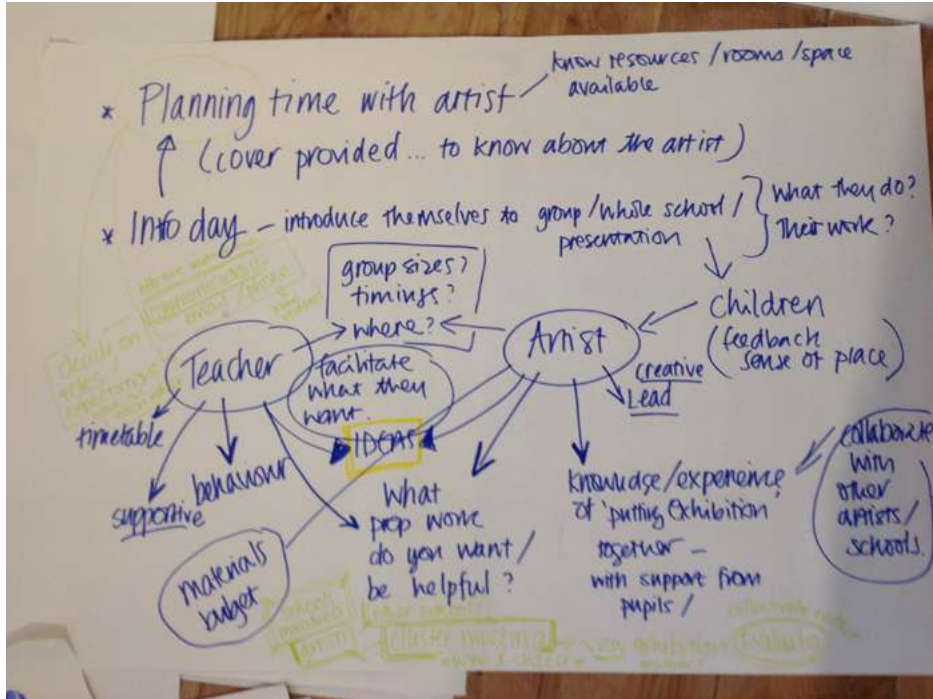 * Planning time with artist
know resources / rooms / space
available
(cover provided... to know about the artist)
* Info day – introduce themselves to group / whole school /
presentation
What they do?
Their work?
group sizes?
timings?
where?
children
(feedback
sense of place)
Teacher
Artist
facilitate
what they
want.
IDEAS
creative
Lead
timetable
supportive
behaviour
materials
budget
What
prep work
do you want /
be helpful?
knowledge/experience
of 'putting Exhibition
together –
with support from
pupils /
collaborate
with
other
artists/
schools.
decide on
roles
expectations
email / phone
artist
cluster meeting
exhibition